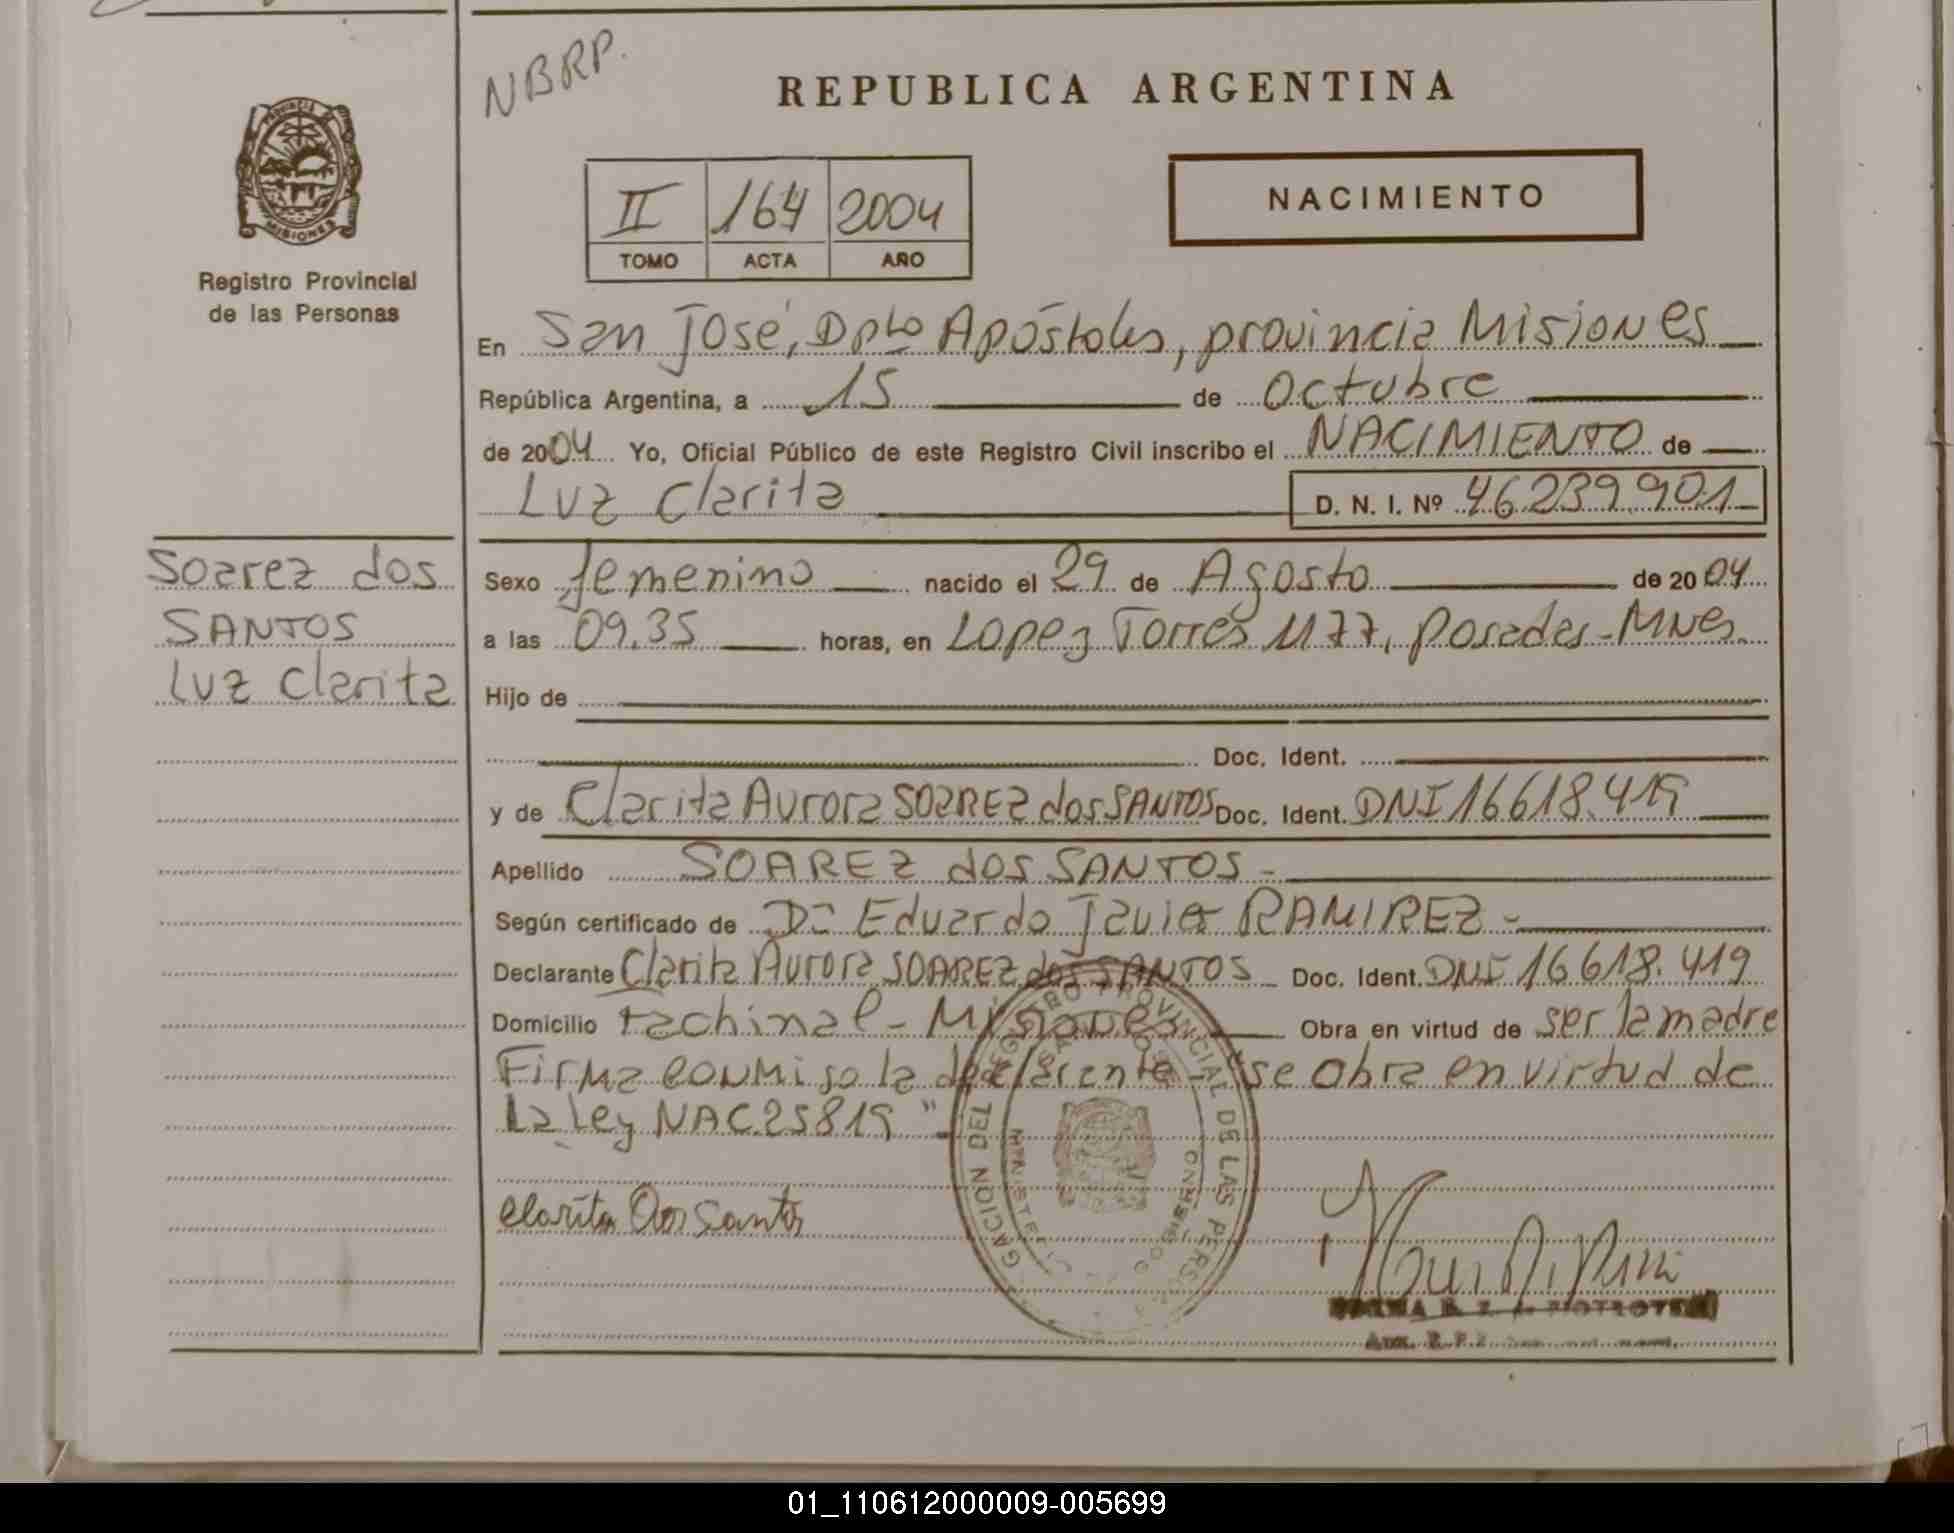 NBRP.
REPUBLICA ARGENTINA
PROVINCIA DE
MISIONES
Registro Provincial
de las Personas
NACIMIENTO
II 164 2004
TOMO ACTA AÑO
En San José, Dpto Apóstoles, provincia Misiones
República Argentina, a 15 de Octubre
de 2004 Yo, Oficial Público de este Registro Civil inscribo el NACIMIENTO de
Luz Clarita D. N. I. Nº 46239.901
Soarez dos
SANTOS
Luz Clarita
Sexo femenino nacido el 29 de Agosto de 2004
a las 09.35 horas, en Lopez Torres 1177, Posadas-Mnes
Hijo de
Doc. Ident.
y de Clarita Aurora SOAREZ dos SANTOS Doc. Ident. DNI 16618.419
Apellido SOAREZ dos SANTOS -
Según certificado de Dr Eduardo Javier RAMIREZ -
Declarante Clarita Aurora SOAREZ dos SANTOS Doc. Ident. DNI 16618.419
Domicilio tachinal - Misiones Obra en virtud de ser la madre
Firma conmigo la declarante "se obra en virtud de
La Ley NAC 25819"
Clarita Dos Santos
REGISTRO PROVINCIAL DE LAS PERSONAS
01_110612000009-005699